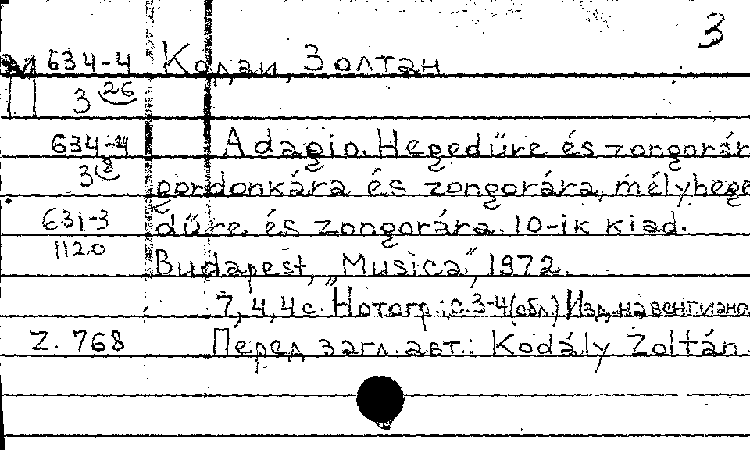 3
634-4 Кодаи, Золтан
3 26
634-4 Adagio. Hegedűre és zongorár
3 8 gordonkára és zongorára, mélyhege
631-3 dűre és zongorára. 10-ik kiad.
1120 Budapest, „Musica", 1972.
7, 4, 4 с. Нотогр.; с. 3-4 (обл.) Изд. на венг. и англ
Z. 768 Перед загл. авт.: Kodály Zoltán